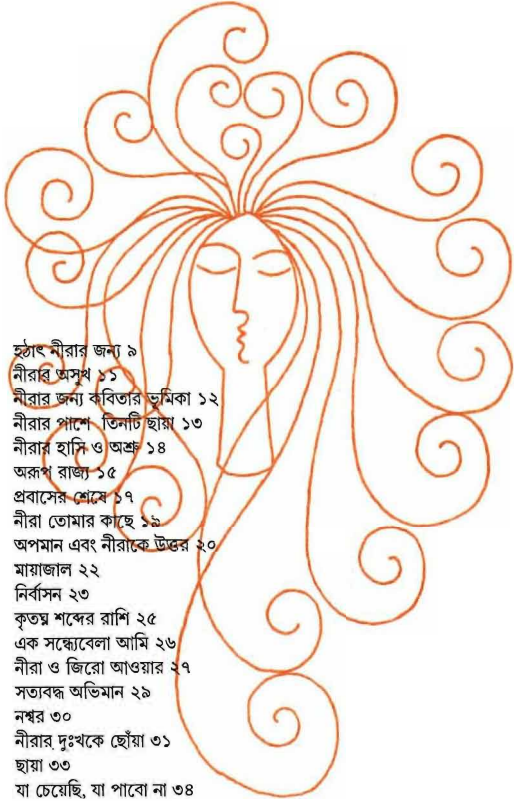 হঠাৎ নীরার জন্য ৯
নীরার অসুখ ১১
নীরার জন্য কবিতার ভূমিকা ১২
নীরার পাশে তিনটি ছায়া ১৩
নীরার হাসি ও অশ্রু ১৪
অরূপ রাজ্য ১৫
প্রবাসের শেষে ১৭
নীরা তোমার কাছে ১৯
অপমান এবং নীরাকে উত্তর ২০
মায়াজাল ২২
নির্বাসন ২৩
কৃতঘ্ন শব্দের রাশি ২৫
এক সন্ধ্যেবেলা আমি ২৬
নীরা ও জিরো আওয়ার ২৭
সত্যবদ্ধ অভিমান ২৯
নশ্বর ৩০
নীরার দুঃখকে ছোঁয়া ৩১
ছায়া ৩৩
যা চেয়েছি, যা পাবো না ৩৪